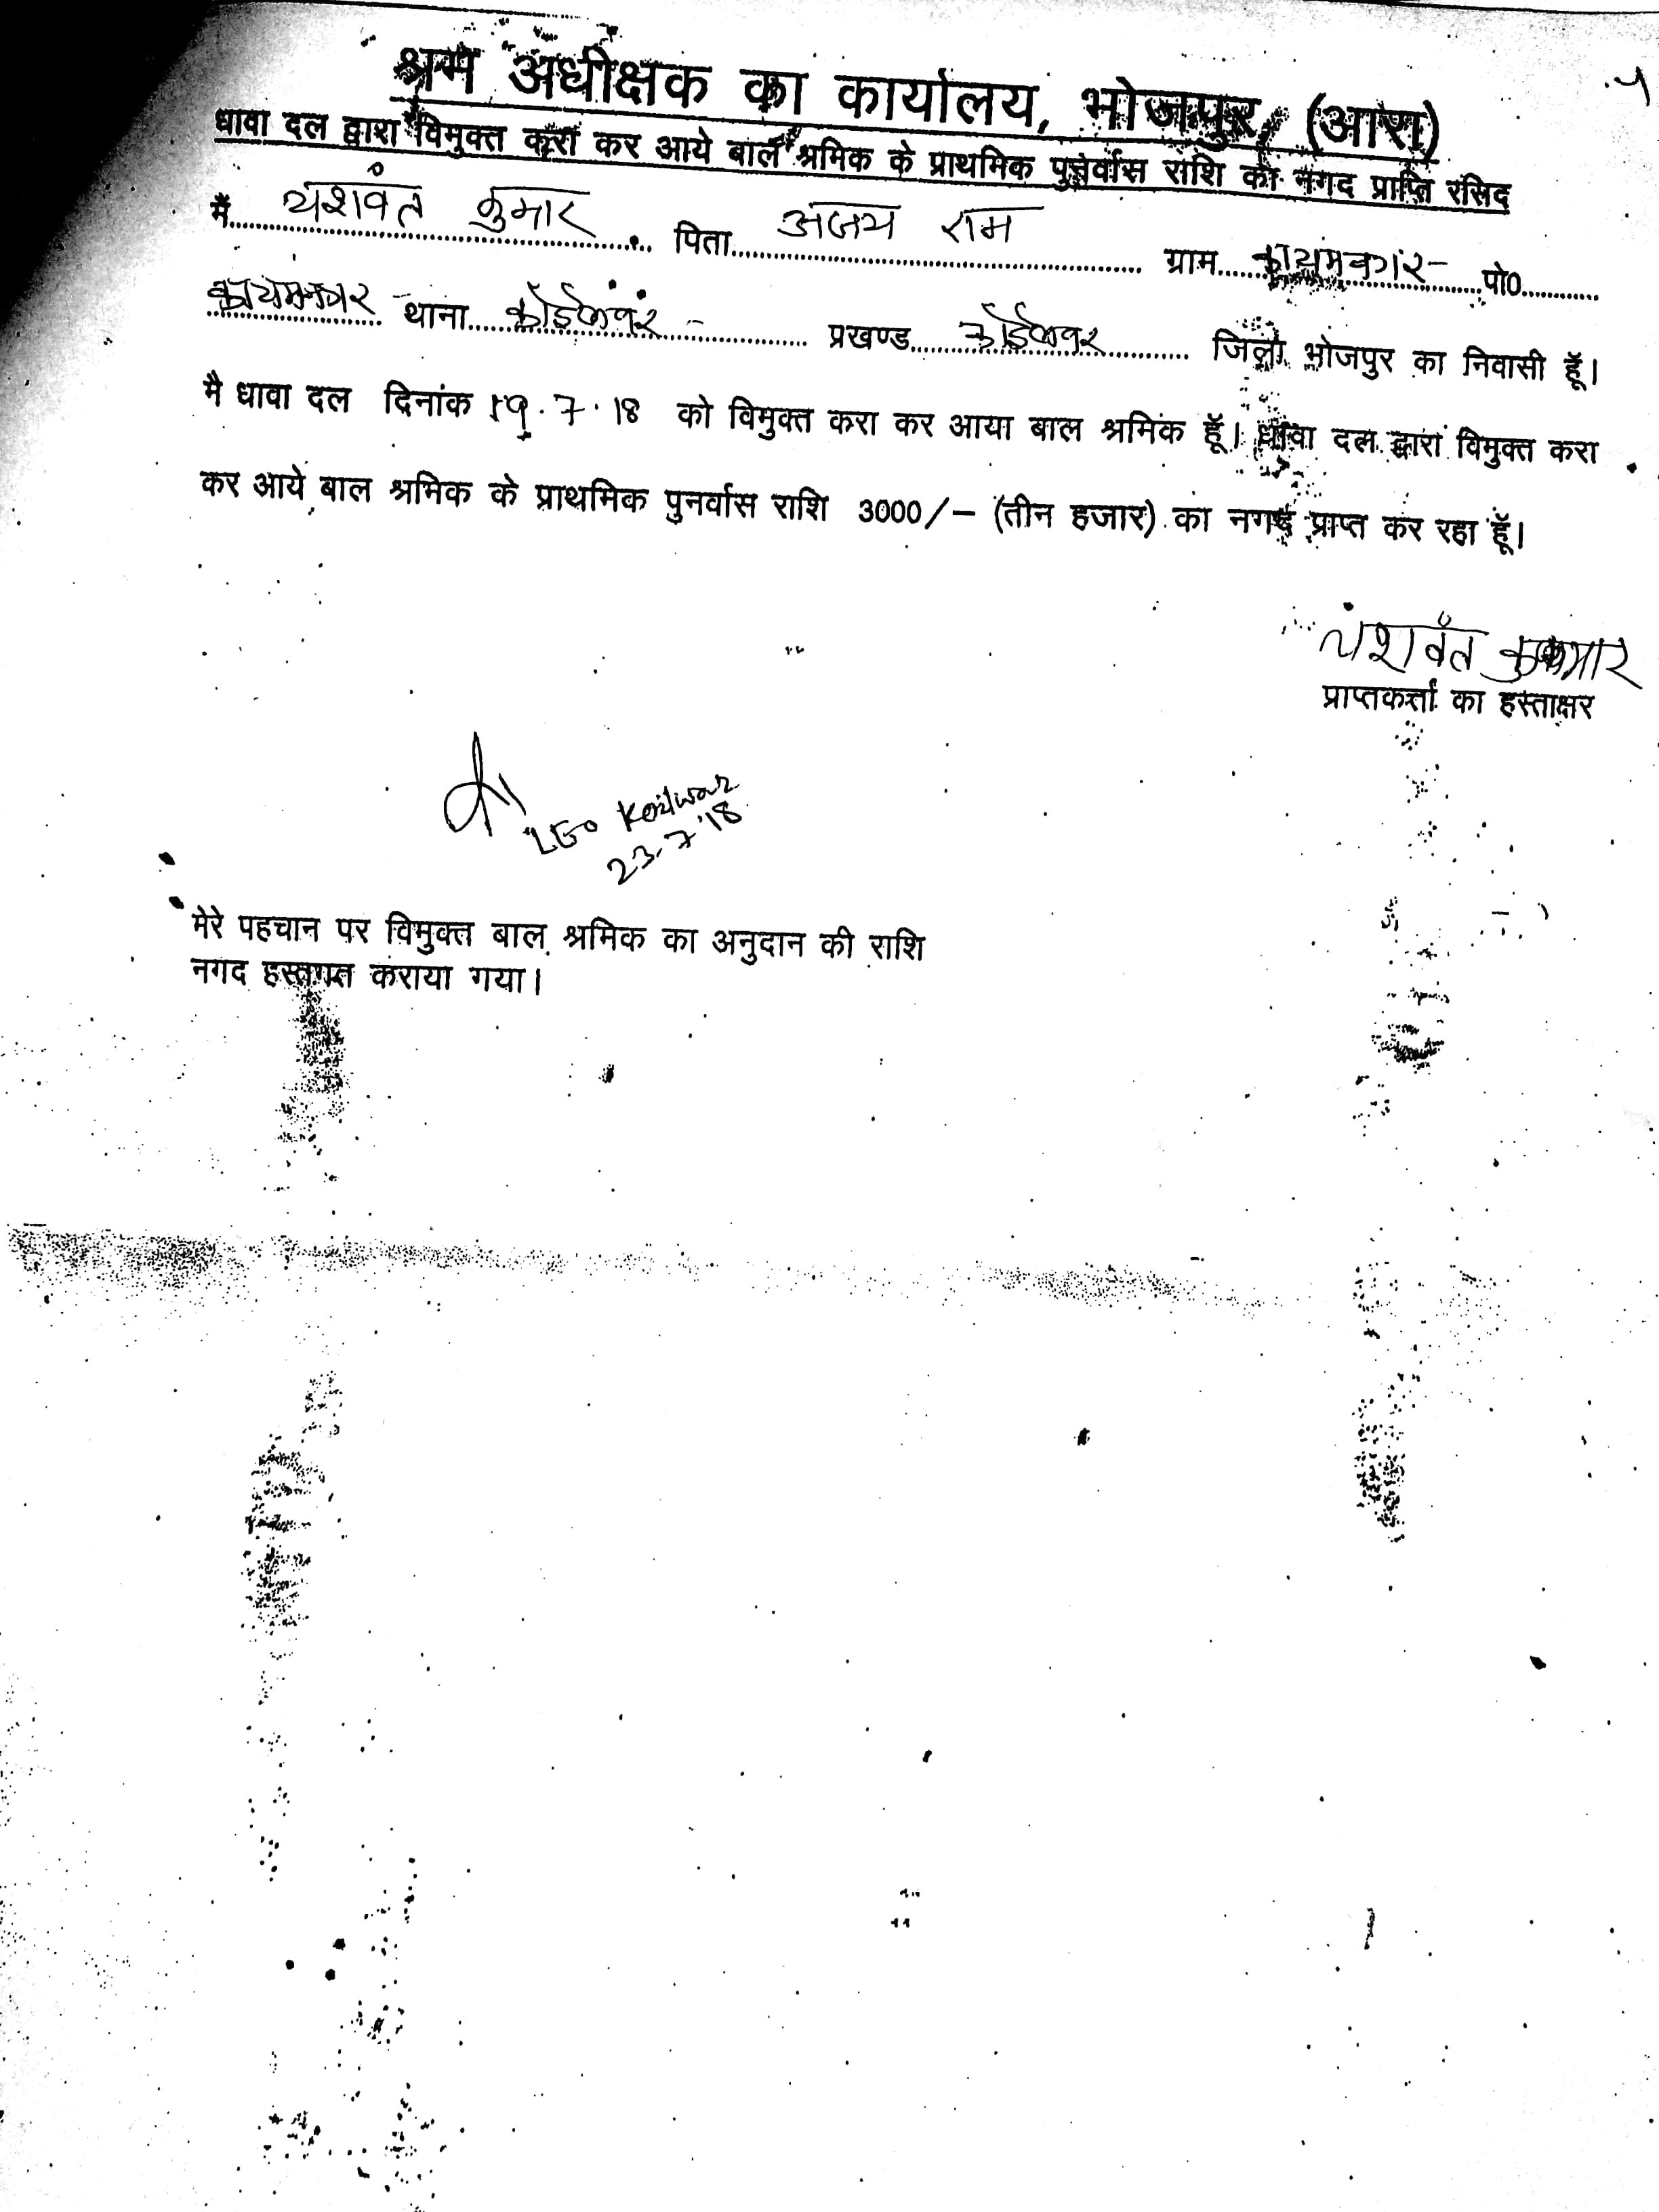 श्रम अधीक्षक का कार्यालय, भोजपुर, (आरा)
धावा दल द्वारा विमुक्त करा कर आये बाल श्रमिक के प्राथमिक पुनर्वास राशि का नगद प्राप्ति रसिद
मैं यशवंत कुमार पिता अजय राम ग्राम कायमनगर पो0
कायमनगर थाना कोईलवर प्रखण्ड कोईलवर जिला भोजपुर का निवासी हूँ।
मै धावा दल दिनांक 19.7.18 को विमुक्त करा कर आया बाल श्रमिक हूँ। धावा दल द्वारा विमुक्त करा
कर आये बाल श्रमिक के प्राथमिक पुनर्वास राशि 3000/– (तीन हजार) का नगद प्राप्त कर रहा हूँ।
यशवंत कुमार
प्राप्तकर्त्ता का हस्ताक्षर
LEO Koilwar
23.7.18
मेरे पहचान पर विमुक्त बाल श्रमिक का अनुदान की राशि
नगद हस्तगत कराया गया।